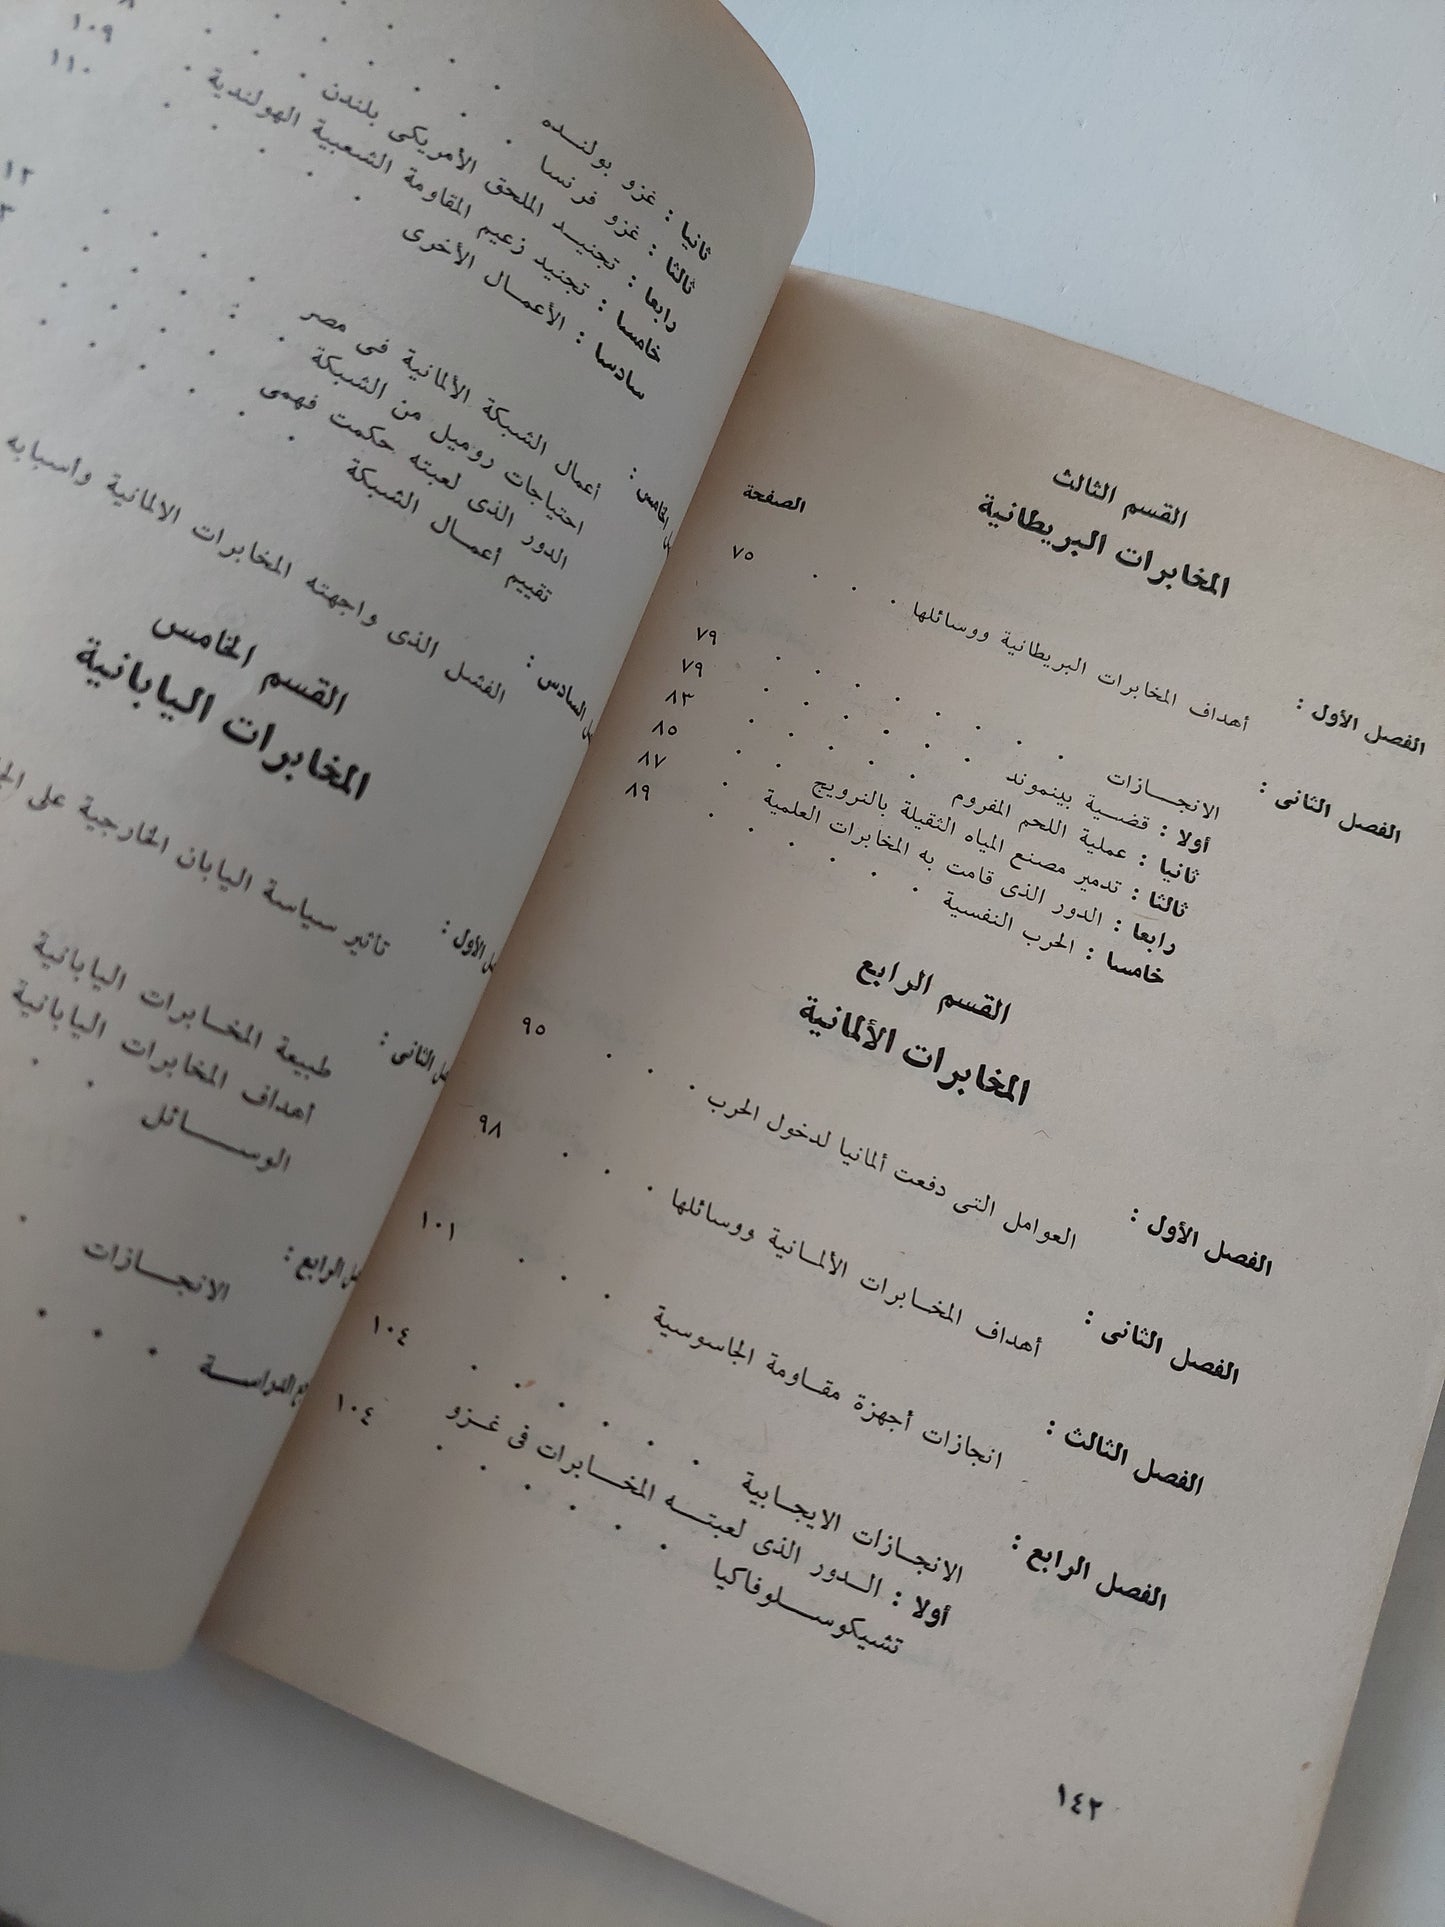 القسم الثالث
المخابرات البريطانية
الصفحة
الفصل الأول : أهداف المخابرات البريطانية ووسائلها . . . ٧٥
الفصل الثانى : الانجـــازات . . . . . . . ٧٩
أولا : قضية بينموند . . . . . . ٧٩
ثانيا : عملية اللحم المفروم . . . . . ٨٣
ثالثا : تدمير مصنع المياه الثقيلة بالنرويج . . ٨٥
رابعا : الدور الذى قامت به المخابرات العلمية . ٨٧
خامسا : الحرب النفسية . . . . . ٨٩
القسم الرابع
المخابرات الألمانية
الفصل الأول : العوامل التى دفعت ألمانيا لدخول الحرب . . . ٩٥
الفصل الثانى : أهداف المخـابرات الألمـانية ووسائلها . . ٩٨
الفصل الثالث : انجازات أجهزة مقـاومة الجاسوسية . . . ١٠١
الفصل الرابع : الانجـازات الايجـابية . . . . . . ١٠٤
أولا : الـدور الذى لعبتـــه المخـــابرات فى غـــزو
تشيكوســـلوفاكيا . . . . . . ١٠٤
١٤٢
ثانيا : غزو بولنـــده
ثالثا : غزو فرنسا
رابعا : تجنيـــد الملحق الأمريكى بلندن . . ١٠٩
خامسا : تجنيد زعيم المقاومة الشعبية الهولندية . ١١٠
سادسا : الأعمـــال الأخرى
الخامس : أعمال الشبكة الألمانية فى مصر
احتياجات روميل من الشبكة
الدور الذى لعبته حكمت فهمى
تقييم أعمـــال الشبكة
السادس : الفشل الذى واجهته المخابرات الالمانية وأسبابه
القسم الخامس
المخابرات اليابانية
الأول : تأثير سياسة اليابان الخارجية على
الثانى : طبيعة المخـــابرات اليابانية
أهداف المخابرات اليابانية
الوســـــائل . .
الرابع : الانجـــازات .
الدراســـة . . .